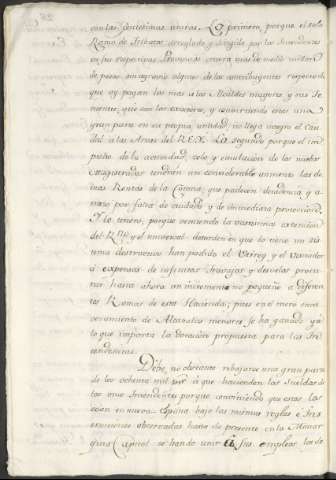 con las Gentesimas
Lo primero, porque el solo
Ramo de Tributos arreglado y dirigido por los Intendentes
en sus respectivas Provincias dará más de medio millon
de pesos, sin agravio alguno de los contribuyentes respecto a
que oy pagan los mas a los Alcaldes mayores y sus Te-
nientes, que son los
gran parte en su propia utilidad, no llega integro el Cau-
dal a las Arcas del REY. Lo segundo porque el im-
pulso de la actividad, celo y emulacion de los nuebos
Magistrados tendrán un considerable aumento las de
mas Rentas de la Corona, que padecen decadencia, y a-
traso por falta de cuidado y de inmediata proteccion.
Y lo tercero, porque
del R.no y el universal desorden en que lo tiene un sis-
tema destructivo han podido el Virrey y el Visitador
á expensas de infinitos trabajos y desvelos propor-
cionar hasta ahora un incremento no pequeño a diferen-
tes Ramos de esta Hacienda; pues en el mero
de Alcavalas menores se ha ganado ya
lo que importa la dotacion propuesta para las In-
tendencias.
Debe, no obstante rebajarse una gran parte
de los ochenta mil p.s á que hacienden los Sueldos de
los once Intendentes porque conviniendo que estos las
en nueva España bajo las mismas reglas é Ins-
trucciones observadas hasta de presente en la Monar
quia
se han de unir á sus empleos los de